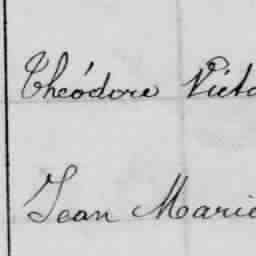 Théodore Victo
Jean Marie